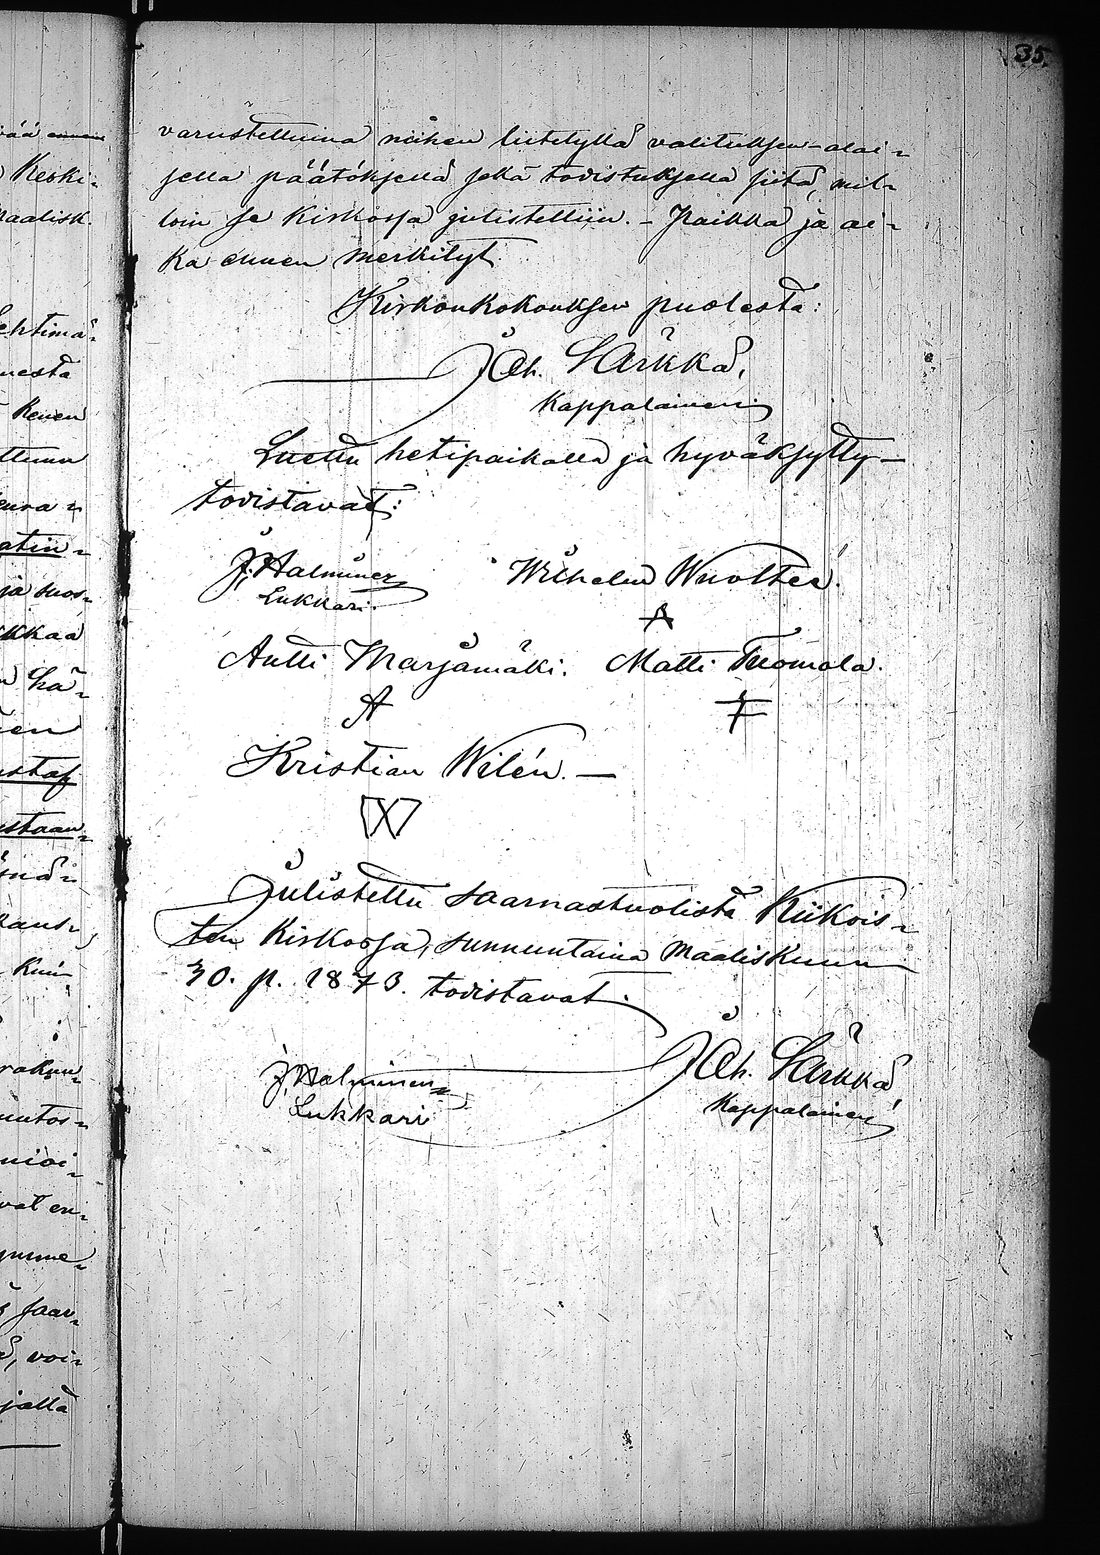 35.
varustettuina näihen liitetyllä valituksen-alai-
sella päätöksellä sekä todistuksella siitä, mil-
loin se kirkossa julistettiin. - Paikka ja ai-
ka ennen merkityt.
Kirkonkokouksen puolesta:
Joh. Särkkä,
Kappalainen
Luettu hetipaikalla ja hyväksytty-
todistavat:
J. Halminen
Lukkari.
Wilhelm Wuoltee.
Antti Marjamäki. Matti Tuomola.
Kristian Wilén. -
W
Julistettu saarnastuolista Kiikois-
ten Kirkossa, sunnuntaina Maaliskuun
30. p. 1873. todistavat.
Joh. Särkkä
Kappalainen
J. Halminen
Lukkari
ennen
Keski-
maalisk.
ehtimä-
mesta
Kenen
eura-
atin-
ja suos-
kkaa
hä-
ien
ustaf
staan-
Kuu-
rakun-
uutos-
nioi-
vat en-
saar-
voi-
jältä